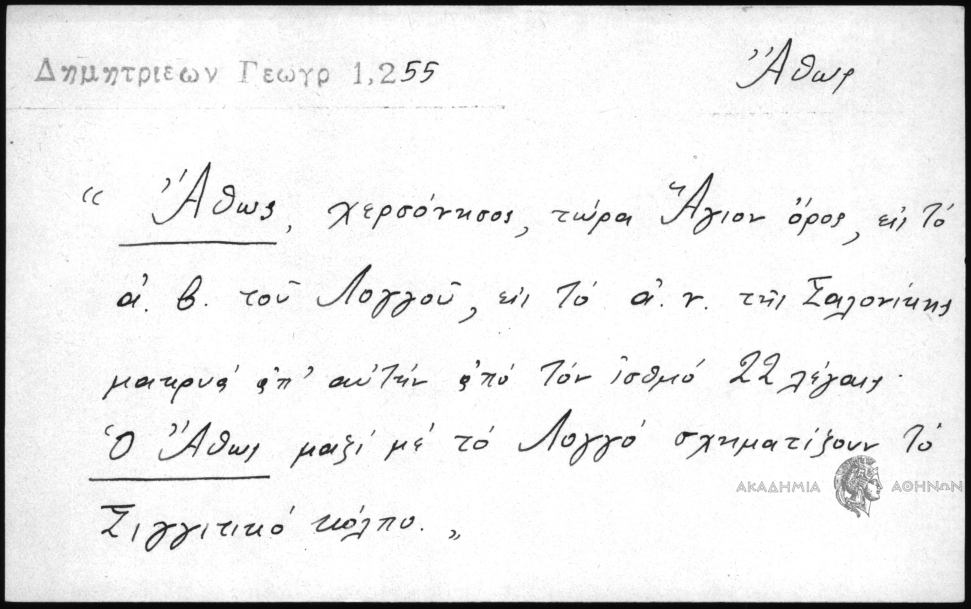 Δημητριεων Γεωγρ 1,255
Ἄθως
“ Ἄθως, χερσόνησος, τώρα Ἅγιον ὄρος, εἰς τὸ
ἀ. β. τοῦ Λογγοῦ, εἰς τὸ ἀ. ν. τῆς Σαλονίκης
μακρυὰ ἀπ' αὐτὴν ἀπὸ τὸν ἰσθμό 22 λέγαις.
Ὁ Ἄθως μαζὶ μὲ τὸ Λογγό σχηματίζουν τὸ
Σιγγιτικό κόλπο. „
ΑΚΑΔΗΜΙΑ ΑΘΗΝΩΝ